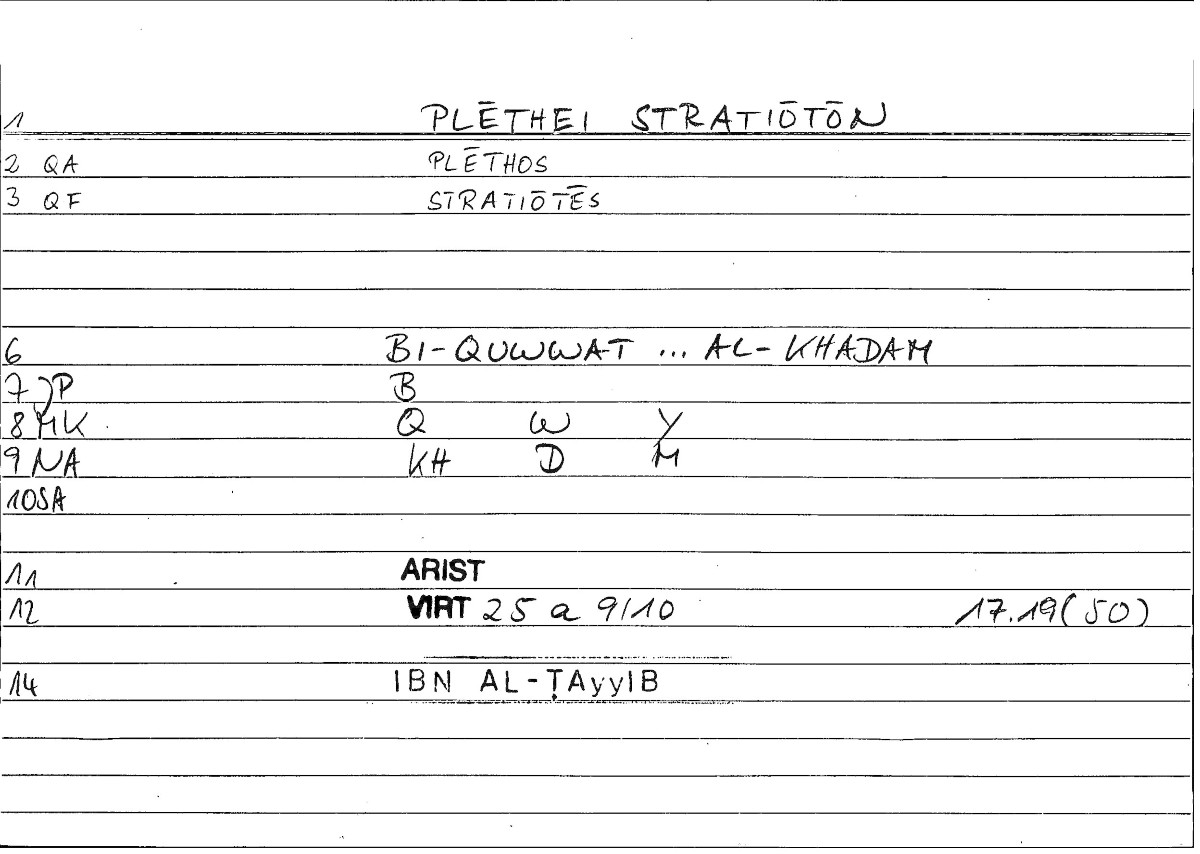 1 PLĒTHEI STRATIŌTŌN
2 QA PLĒTHOS
3 QF STRATIŌTĒS
6 BI-QUWWAT ... AL-KHADAM
7 )P B
8 MK Q W Y
9 NA KH D M
10 SA
11 ARIST
12 VIRT 25 a 9/10 17.19(50)
14 IBN AL-ṬAyyIB